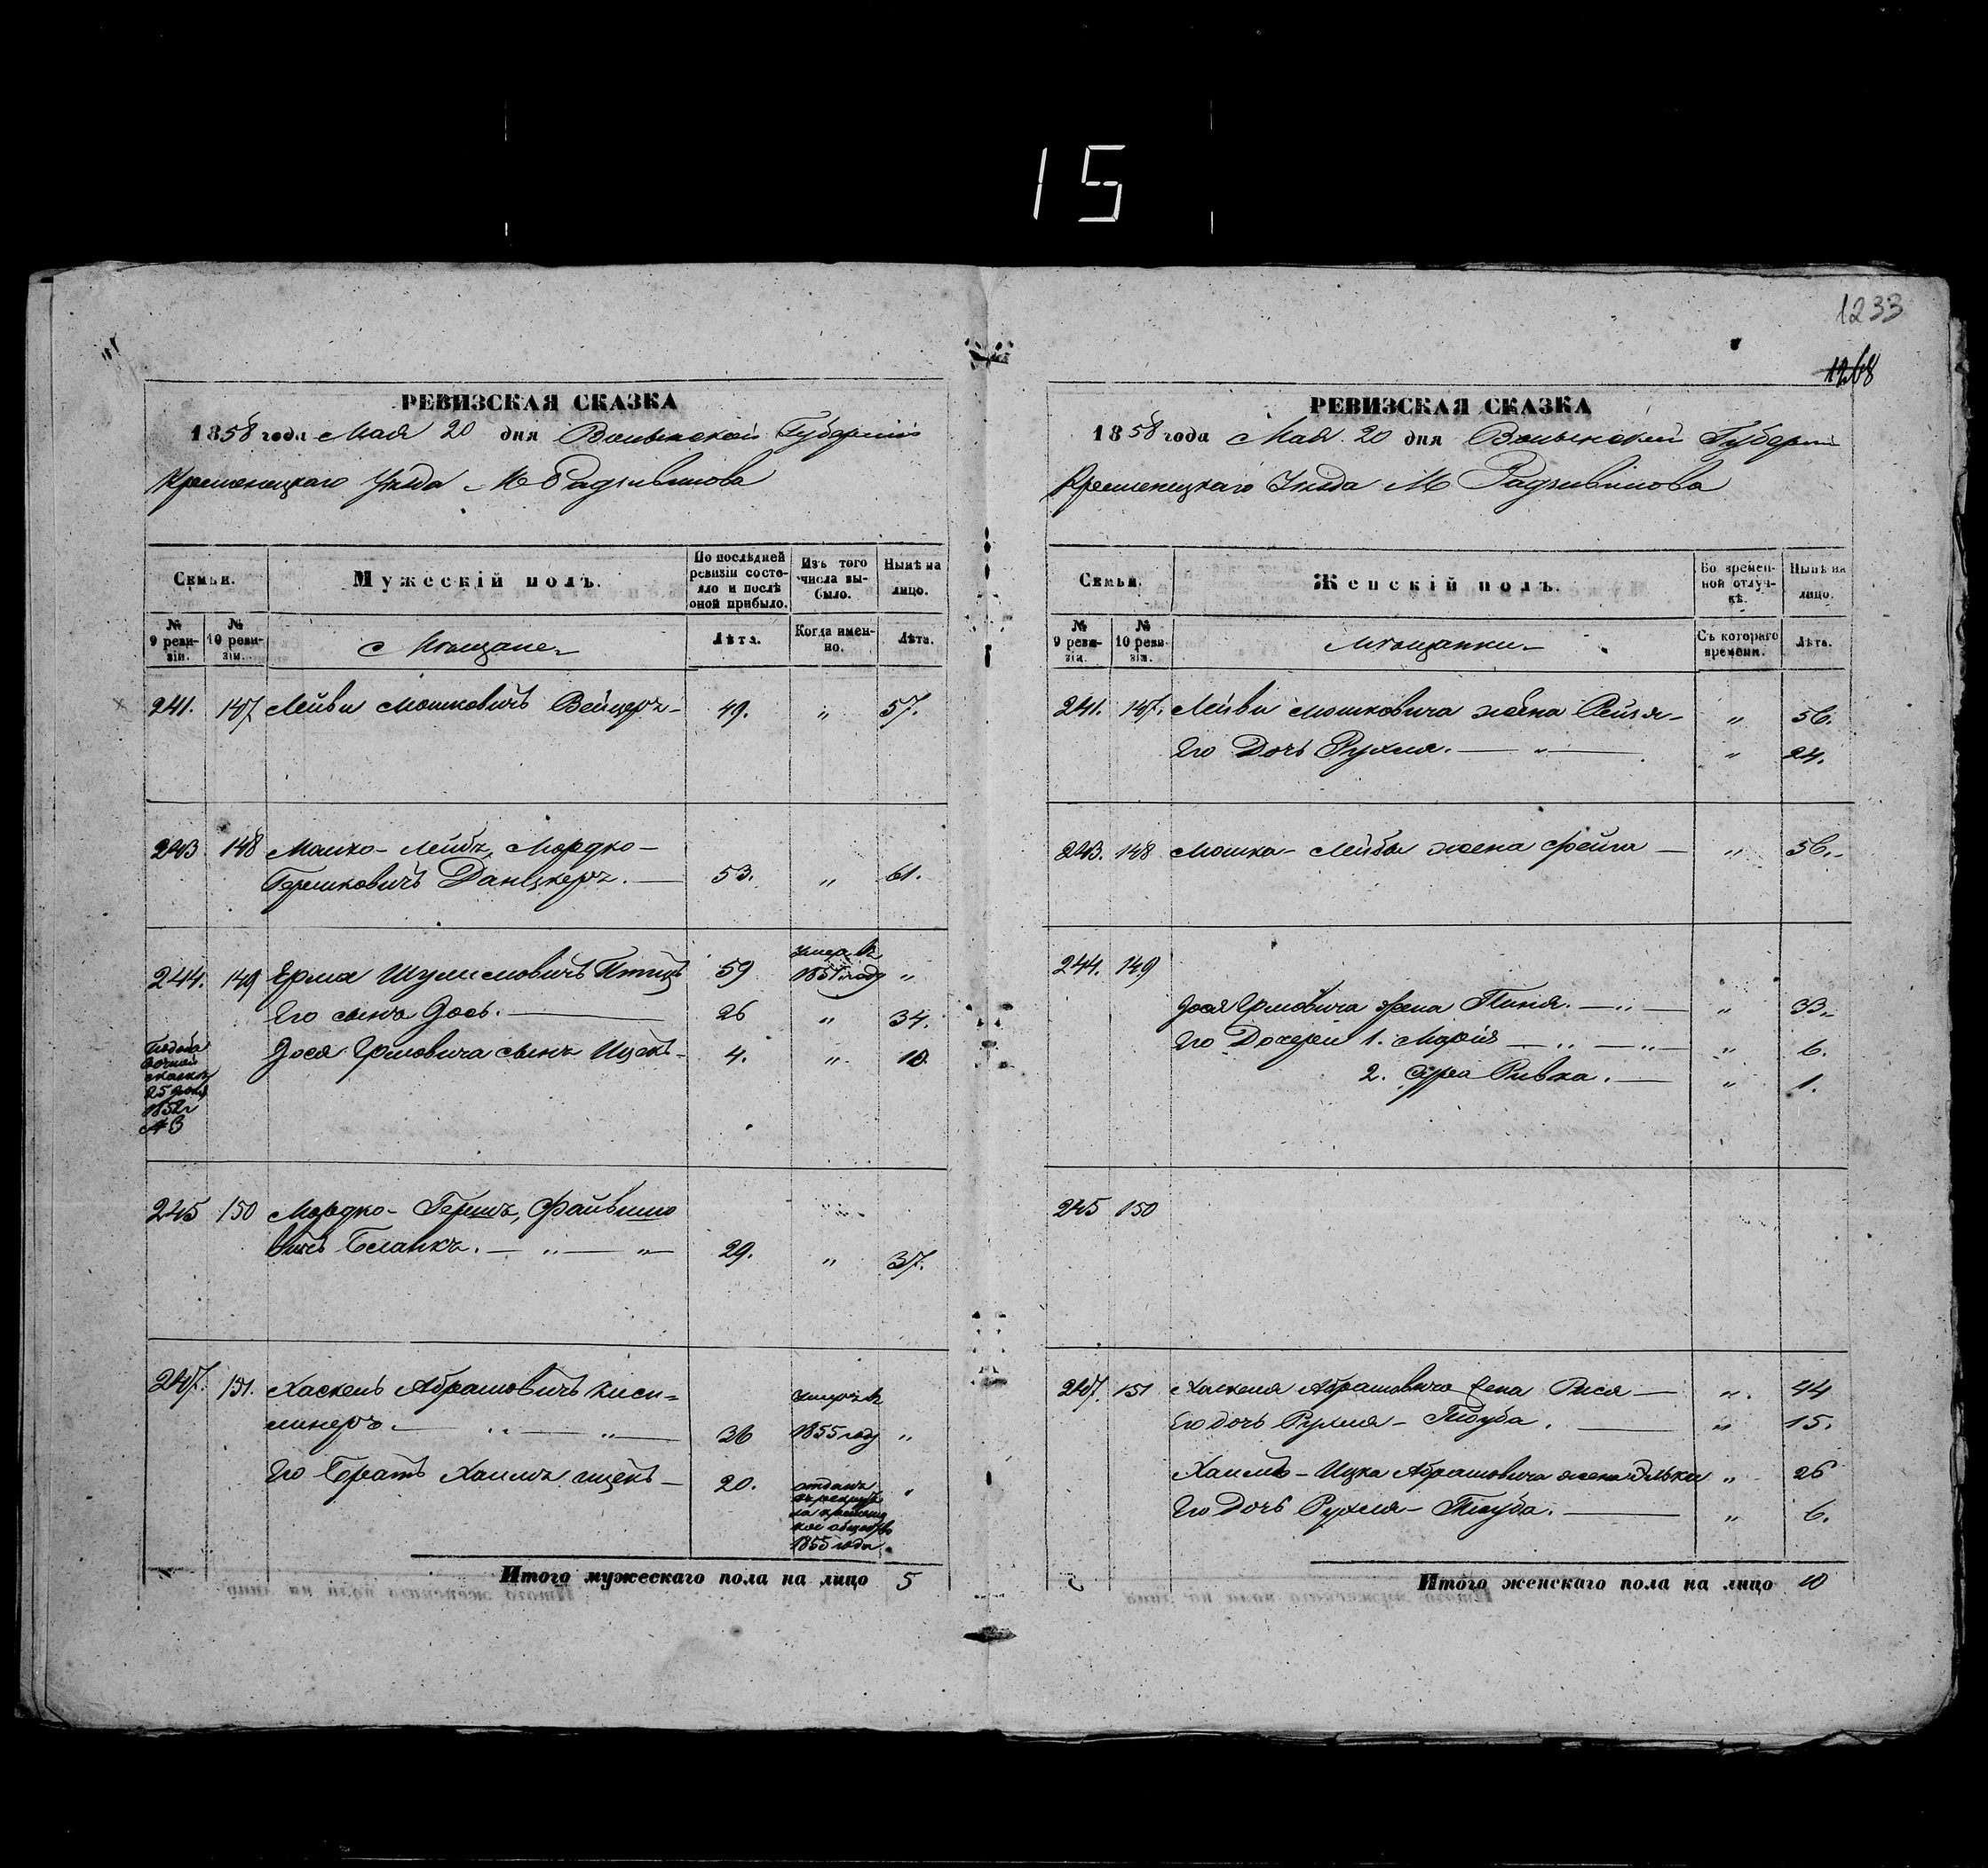 15
1233
1268
РЕВИЗСКАЯ СКАЗКА
1858 года Мая 20 дня Волынской Губернiи
Кременецкаго Уѣзда М Радзивилова
Семьи.
Мужескій полъ.
По послѣдней ревизіи состояло и послѣ оной прибыло.
Изъ того числа выбыло.
Нынѣ на лицо.
№ 9 ревизіи.
№ 10 ревизіи.
Мѣщане
Лѣта.
Когда именно.
Лѣта.
241. 147 Лейви Мошковичъ Вейцеръ 49. " 57.
243 148 Мошко-Лейбъ, Мордко-
Гершковичъ Данцкеръ. 53. " 61.
умеръ въ
244. 149 Ерма Шулимовичъ Птицъ 59 1851 году "
Его сынъ Йось. 26 " 34.
Йося Ермовича сынъ Ицекъ 4. " 10.
сказкѣ
25
1852 г
№ 3
245 150 Мордко-Гершъ, Файвишо
вичъ Бланкъ. " " 29. " 37.
247. 151. Хаскель Абрамовичъ Киси=
умеръ въ
линеръ. " " 36 1855 году "
Его Братъ Хаимъ Ицекъ 20. отданъ "
въ рекруты
на
кое общество
1855 года
Итого мужескаго пола на лицо 5
РЕВИЗСКАЯ СКАЗКА
1858 года Мая 20 дня Волынской Губерни
Кременецкаго Уѣзда М Радзивилова
Семьи.
Женскій полъ.
Во временной отлучкѣ.
Нынѣ на лицо.
№ 9 ревизіи.
№ 10 ревизіи.
Мѣщанки
Съ котораго времени.
Лѣта.
241. 147. Лейви Мошковича жена Рейзя " 56.
Его Дочь Рухля. " " 24.
243. 148 Мошка-Лейба жена Фейга " 56.
244. 149
Йося Ермовича жена Пиня. " " 33.
Его Дочери 1. Марія " " " 6.
2. Сура Ривка. " 1.
245 150
247. 151 Хаскеля Абрамовича жена Рися " 44
Его дочь Рухля-Тауба. " 15.
Хаимъ-Ицка Абрамовича жена Элька " 26
Его Дочь Рухля-Тауба. " 6.
Итого женскаго пола на лицо 10